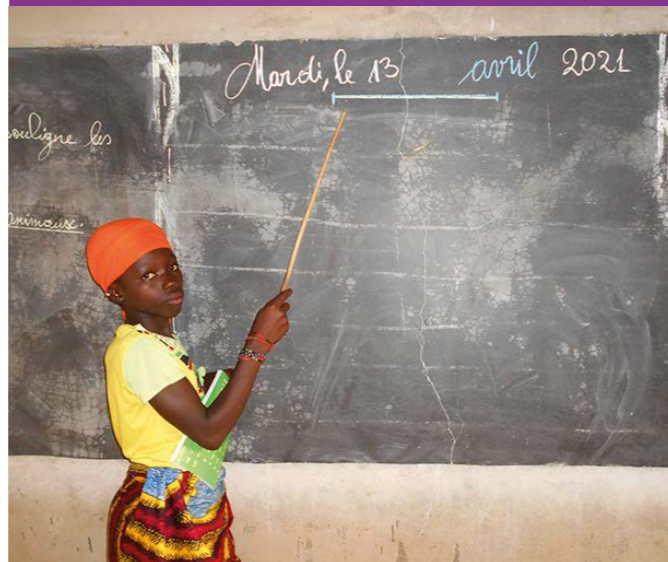 Mardi, le 13 avril 2021
souligne les
animaux.